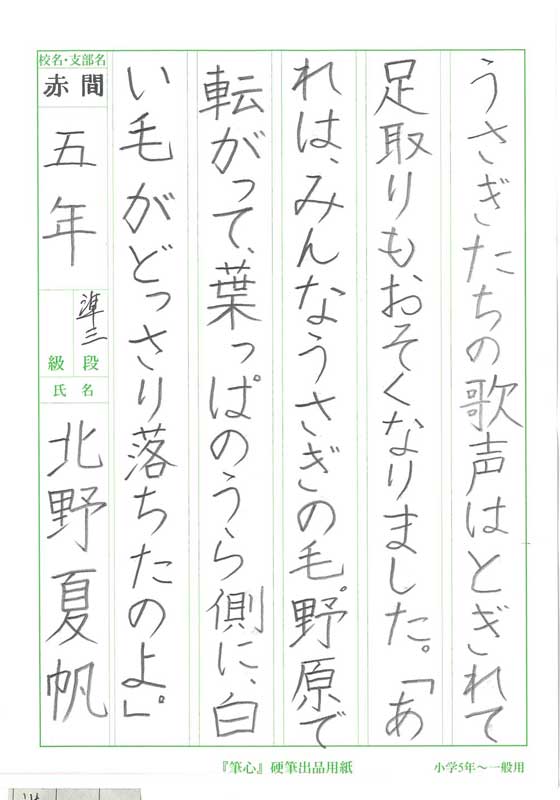 うさぎたちの歌声はとぎれて
足取りもおそくなりました。「あ
れは、みんなうさぎの毛。野原で
転がって、葉っぱのうら側に、白
い毛がどっさり落ちたのよ。」
校名・支部名
赤間
五年
準三
級段
氏名
北野夏帆
『筆心』硬筆出品用紙
小学5年～一般用